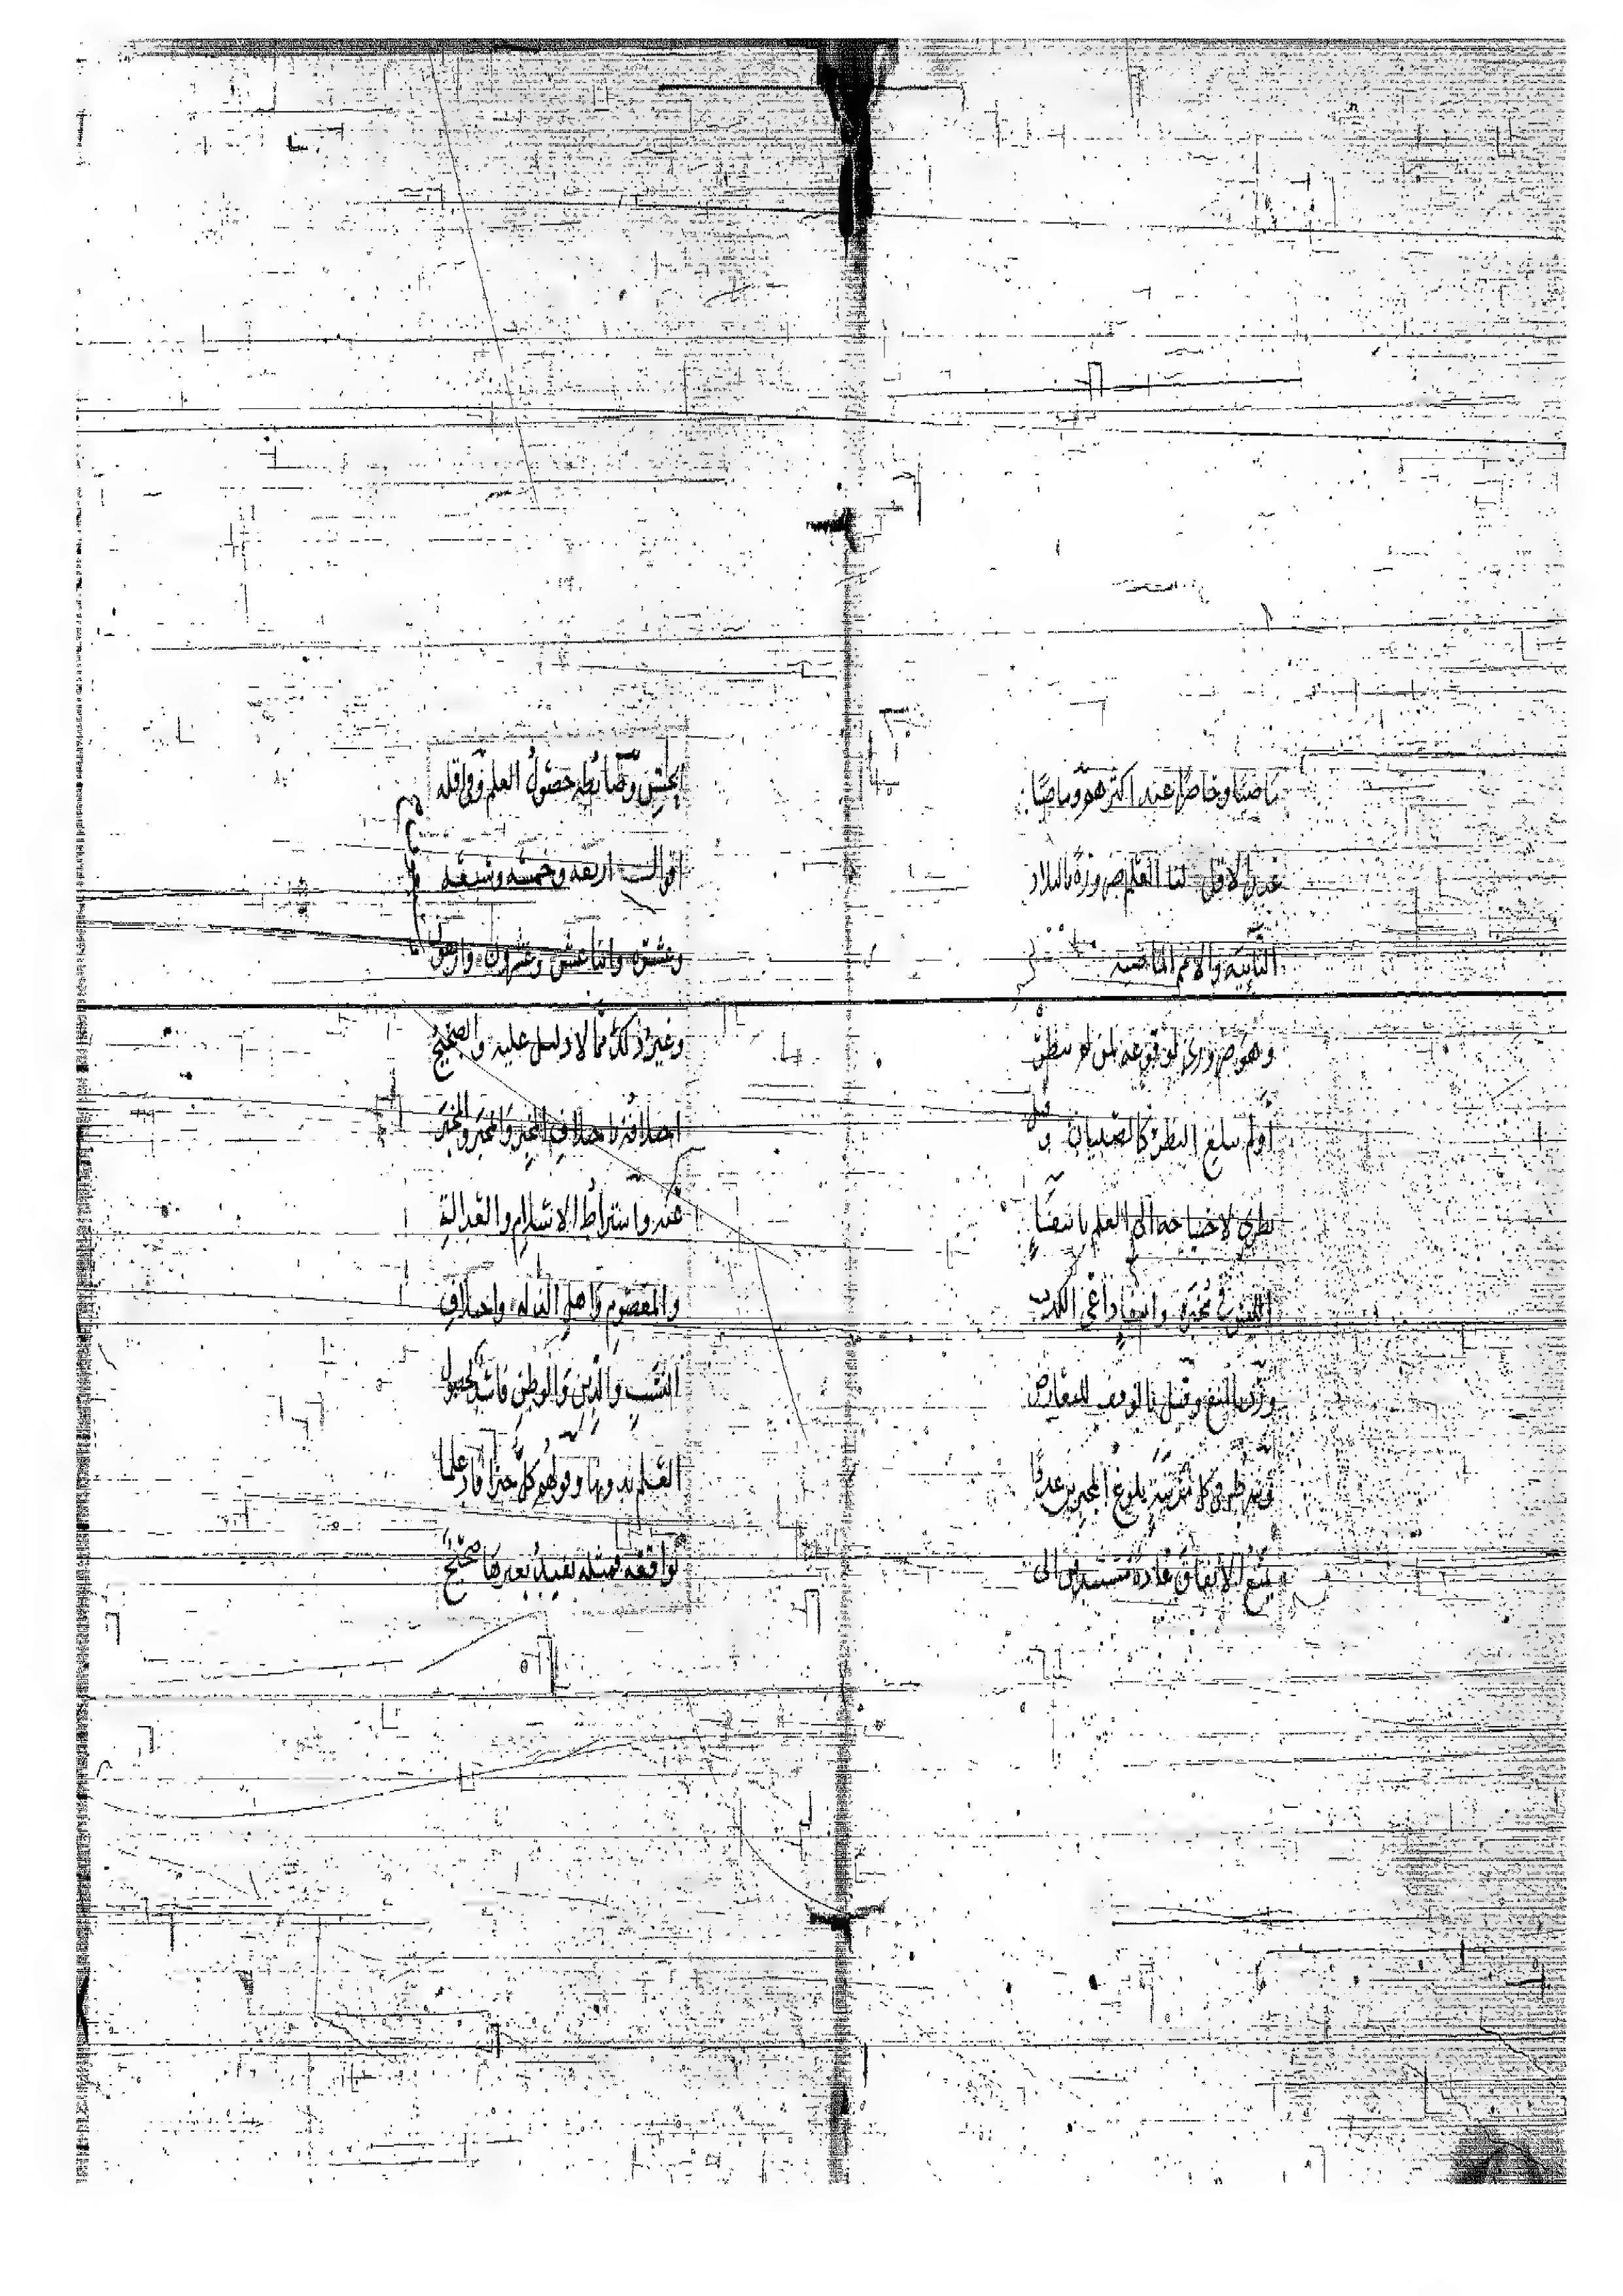 ماضيا وحاضرا عند اكثرهم وماضيا
عند الاقل لنا العلم ضرورة بالبلاد
النائية والامم الماضية
وهو ضروري لوقوعه لمن لم ينظر
او لم يبلغ النظر كالصبيان وقيل
نظري لاحتياجه الى العلم بانتفاء
اللبس في مخبره وانتفاء داعي الكذب
ورد بالمنع وقيل بالوقف للتعارض
وشرطه في كل مرتبة بلوغ المخبرين عددا
يمتنع الاتفاق عادة مستندين الى
الحس وضابطه حصول العلم وفي اقله
اقوال اربعة وخمسة وسبعة
وعشرة واثنا عشر وعشرون واربعون
وغير ذلك مما لا دليل عليه والصحيح
اختلافه باختلاف المخبر والمخبر والمخبر
عنه واشتراط الاسلام والعدالة
والمعصوم واهل الذلة واختلاف
النسب والدين والوطن فاسد لحصول
العلم بدونها وقولهم كل خبر افاد علما
لواقعة فمثله يفيد بغيرها صحيح